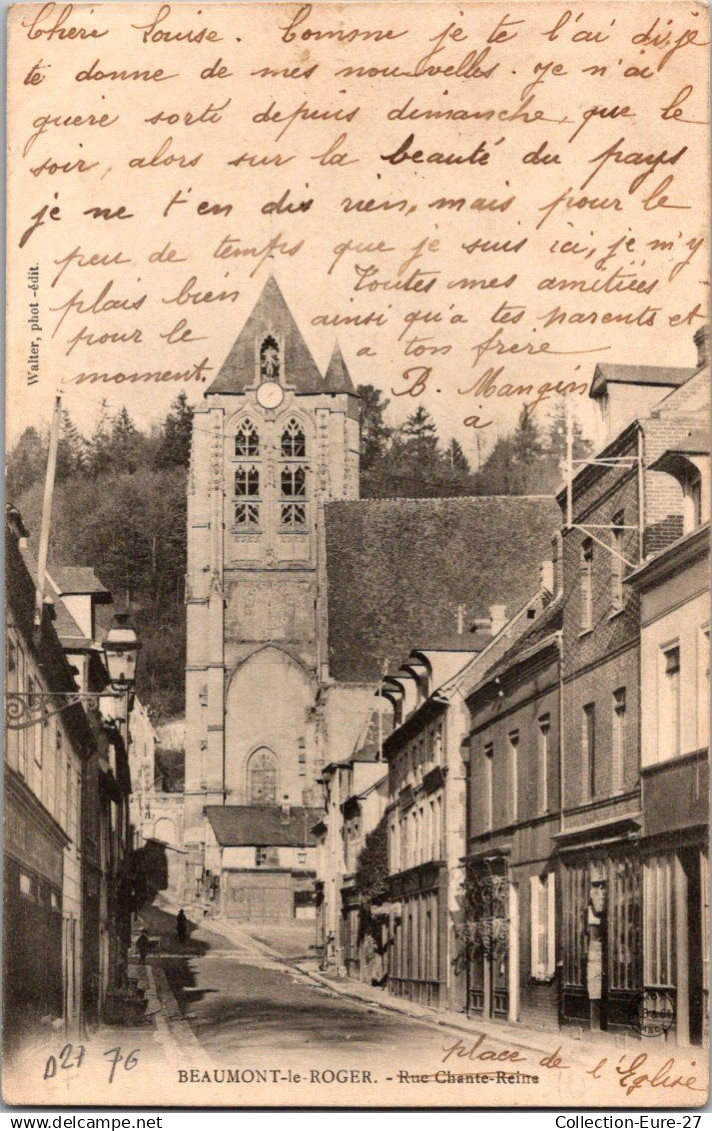 Chère Louise. Comme je te l'ai dit, je
te donne de mes nouvelles. Je n'ai
guère sorti depuis dimanche, que le
soir, alors sur la beauté du pays
je ne t'en dis rien, mais pour le
peu de temps que je suis ici, je m'y
plais bien
pour le
moment.
Toutes mes amitiés
ainsi qu'à tes parents et
a ton frère
B. Mangin
à
Walter, phot-édit.
place de l'Eglise
BEAUMONT-le-ROGER. - Rue Chante-Reine
D27 76
Collection-Eure-27